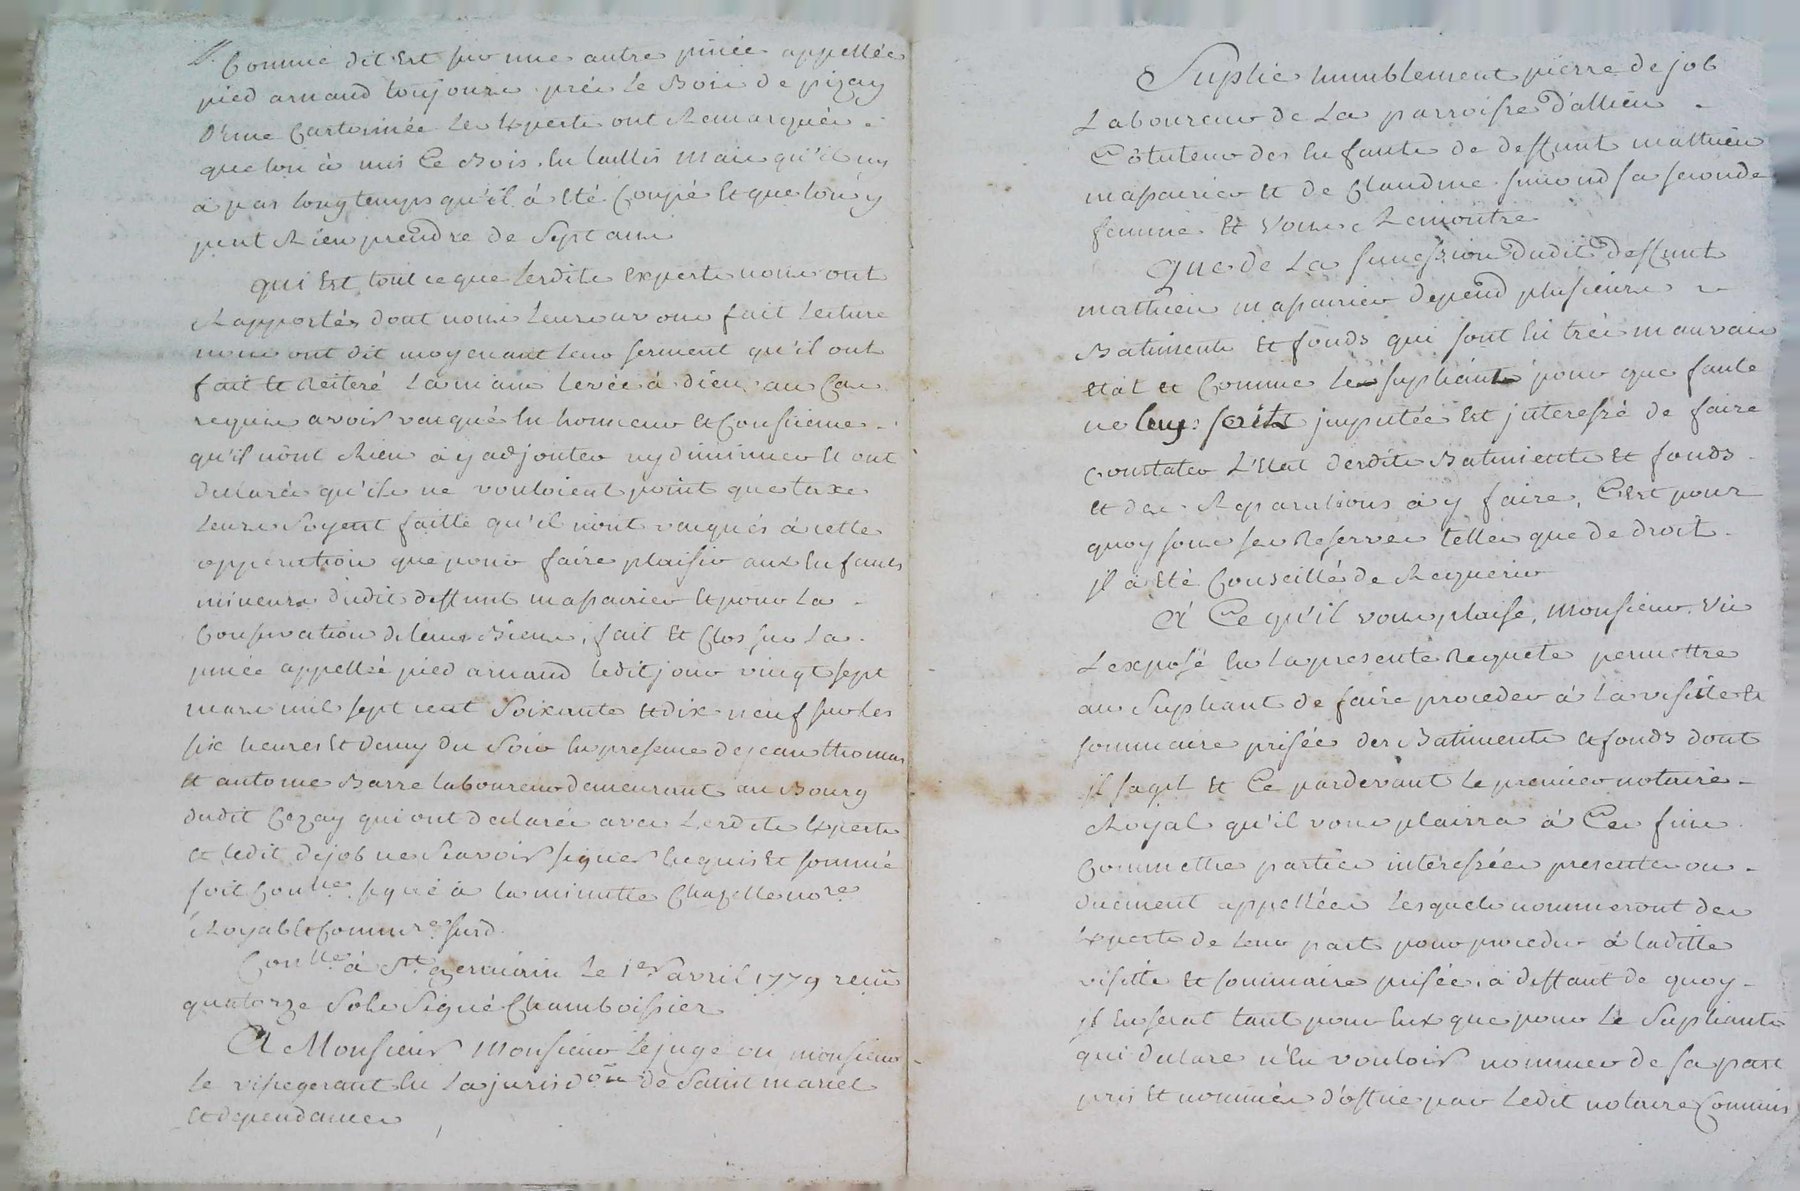 Comme dit Est sur une autre piece appellée
pied arnaud toujours prés le Bois de pizay
D'une Cartonnée les Experts ont Remarqués
que lon à mis Ce Bois En taillis mais qu'il ny
a pas longtemps qu'il à Eté Coupé Et que lon y
peut Rien prendre de Sept ans
qui Est tout ce que lesdits Experts nous ont
Rapportés dont nous Leurs avons fait Lecture
nous ont dit moyenant leur serment qu'il ont
fait Et Reiteré La main levée à dieu au Cas
requis avoir vacqué En honneur Et Consiience
qu'il nônt Rien à y adjouter ny diminuer Et ont
declarés qu'ils ne vouloient point que taxe
leurs Soyent faitte qu'il nont vacqués à cette
opperation que pour faire plaisir aux Enfants
mineurs dudit deffunt massacrier Et pour La
Conservation de leurs Biens, fait Et Clos sur La
piece appellée pied arnaud ledit jour vingt sept
mars mil sept cent Soixante Et dix neuf sur les
six heures Et demy du Soir En presence de jean thomas
Et antoine Barre laboureur demeurants au Bourg
dudit Cezay qui ont declarés avec Lesdits Experts
Et ledit dejob ne Scavoir signer Enquis Et sommé
soit Conlle signé à la minutte Chazelle nore
Royal Et Commre susd.
Conllé à St germain Le 1er avril 1779 reçu
quatorze Sols Signé Chamboissier
A Monsieur Monsieur Le juge ou monsieur
Le visegerant En La jurisdon de Saint marcel
Et dependances
Suplie humblement pierre dejob
Laboureur de La parroisse d'allieu
Côtuteur des Enfants de deffunt mathieu
massacrier Et de Claudine simond sa seconde
femme Et vous Remontre
Que de La succession dudit deffunt
mathieu massacrier depend plusieurs
Batiments Et fonds qui sont En trés mauvais
Etat Et Comme Le supliant pour que faute
ne luy soit jmputée Est jnteressé de faire
Constater L'Etat desdits Batiments Et fonds
Et des Reparations à y faire, C'Est pour
quoy sous ses Reserves telles que de droit
jl à Eté Conseillé de Requerir
A Ce qu'il vous plaise, Monsieur, vû
L'exposé En La presente Requete permettre
au Supliant de faire proceder à La visitte Et
sommaire prisée des Batiments Et fonds dont
jl sagit Et Ce pardevant Le premier notaire
Royal qu'il vous plairra à Ces fins
Commettre parties intéressées presentes ou
duement appellées Lesquels nommeront des
Experts de Leur part pour proceder à Laditte
visitte Et sommaire prisée, a deffaut de quoy
jl En serat tant pour Eux que pour Le Supliant
qui declare n'En vouloir nommer de sa part
pris Et nommés d'office par Ledit notaire Commis